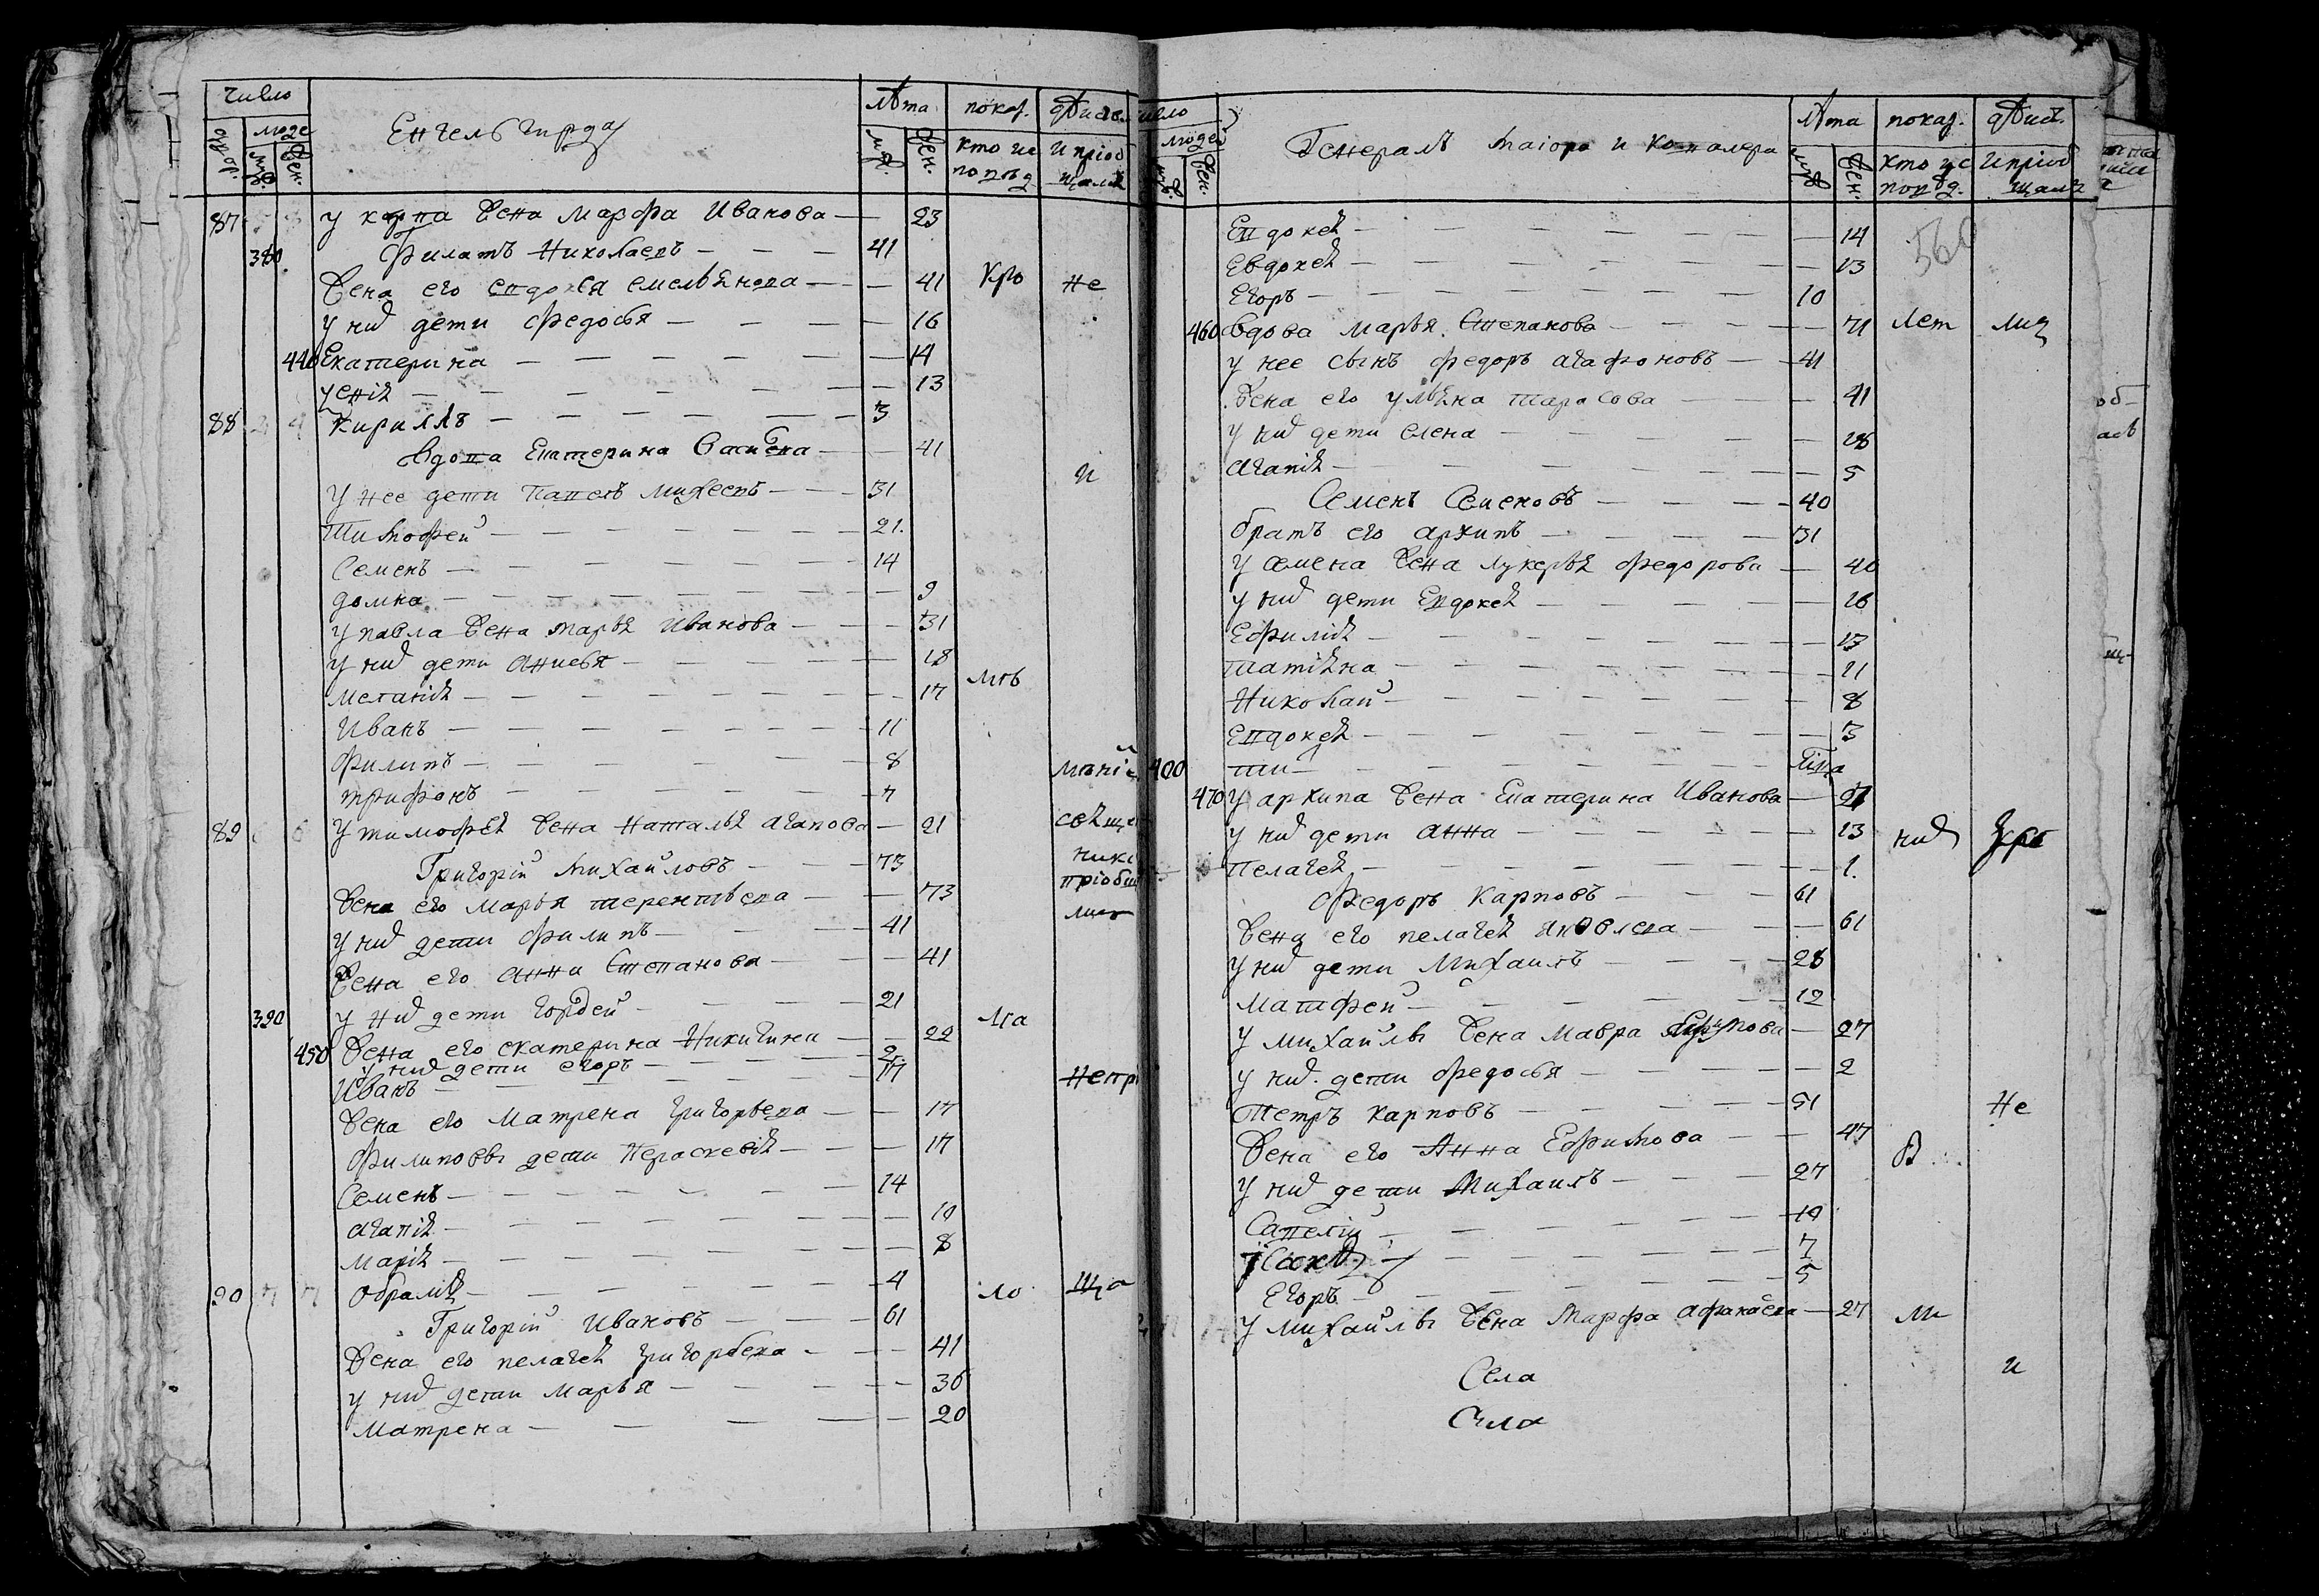 число
людей
двор.
муж.
жен.
Енгельгарда
лѣта
муж.
жен.
показ.
кто ис
повѣд.
дѣйст.
и пріоб
щался
87 у карпа жена марфа Иванова — 23
380 Филатъ Николаевъ — 41
жена его евдокея емельянова — 41 Кро Не
у них дети федосья — 16
440 Екатерина — 14
— 13
88 Кирилъ — 3
вдова Екатерина Васильева — 41 и
у нее дети Павелъ михеевъ — 31
Тимофей — 21.
Семенъ — 14
домна — 9
у павла жена марья Иванова — 31
у них дети анисья — 18
меланія — 17 мѣ
Иванъ — 11
Филипъ — 8
трифонъ — 7
89 У тимофея жена наталья агапова — 21
Григорій михайловъ — 73
жена его марья терентьева — 73
у них дети филипъ — 41
жена его анна степанова — 41
390 у них дети гордей — 21 ма
450 жена его екатерина Никитина — 22
у них дети егоръ — 2
Иванъ — 17 Непрі
жена его матрена григорьева — 17
филиповы дети Параскевія — 17
Семенъ — 14
агапія — 10
марія — 8
90 — 4 ло ща
Григорій Ивановъ — 61
жена его пелагея григорьева — 41
у них дети марья — 36
матрена — 20
число
людей
муж.
жен.
Генералъ маіора и кавалера
лѣта
муж.
жен.
показ.
кто ис
повѣд.
дѣйст.
и пріоб
щался
560
Евдокея — 14
Евдокея — 13
Егоръ — 10
460 вдова марья степанова — 71 лет лиц
у нее сынъ федоръ агафоновъ — 41
жена его ульяна тарасова — 41
у них дети елена — 18
агапія — 5
Семенъ Семеновъ — 40
братъ его архипъ — 31
у семена жена лукерья федорова — 40
у них дети Евдокея — 16
Ефимія — 13
татіяна — 11
Николай — 8
Евдокея — 3
400
470 у архипа жена Екатерина Иванова — 27
у них дети анна — 13 них
пелагея — 1.
Федоръ Карповъ — 61
жена его пелагея яковлева — 61
у них дети михаилъ — 28
матфей — 12
у михайлы жена мавра — 27
у них дети федосья — 2
Петръ карповъ — 51 Не
жена его Анна Ефимова — 47 В
у них дети михаилъ — 27
Савелій — 10
— 7
Егоръ — 5
у михайлы жена марфа афанасева — 27 ми
Села и
Села